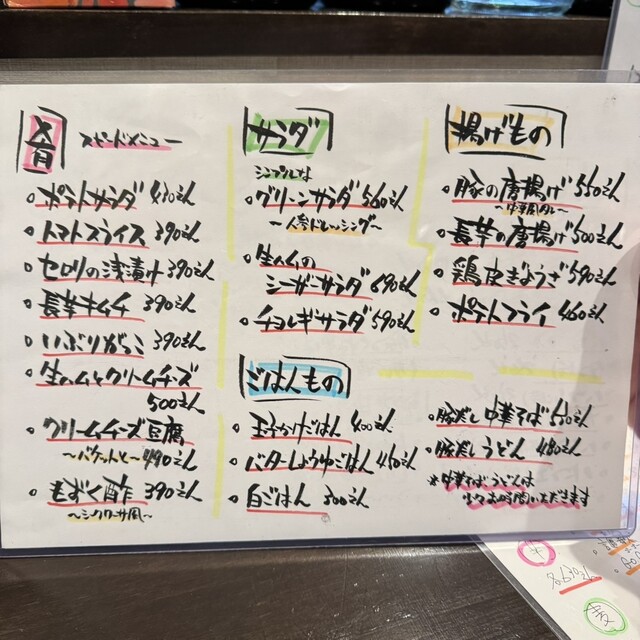 肴 スピードメニュー
・ポテトサラダ 430えん
・トマトスライス 390えん
・セロリの浅漬け 390えん
・長芋キムチ 390えん
・いぶりがっこ 390えん
・生ハムとクリームチーズ
500えん
・クリームチーズ豆腐
〜バケットと〜 490えん
・もずく酢 390えん
〜シークワーサー風〜
サラダ
シンプルな
・グリーンサラダ 560えん
〜人参ドレッシング〜
・生ハムの
シーザーサラダ 690えん
・チョレギサラダ 590えん
ごはんもの
・玉子かけごはん 400えん
・バターしょうゆごはん 450えん
・白ごはん 300えん
揚げもの
・豚の唐揚げ 550えん
〜中華風〜
・長芋の唐揚げ 500えん
・鶏皮ぎょうざ 590えん
・ポテトフライ 460えん
・豚だし中華そば 550えん
・豚だしうどん 480えん
※中華そば・うどんは
少々お時間いただきます